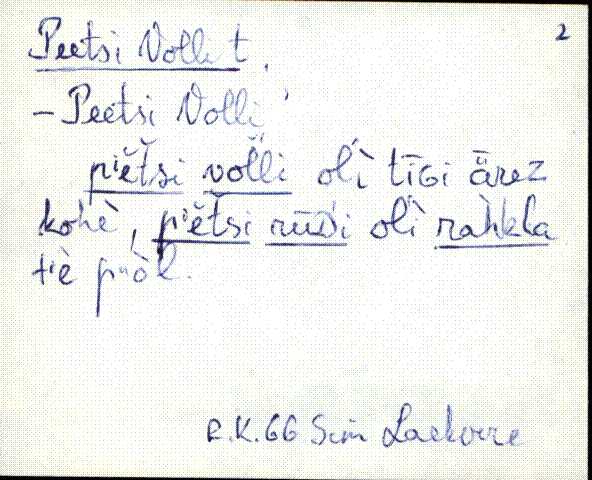 2
Peetsi Volli t.
– Peetsi Volli
piět̆si voľli oľì tīGi ǟrez
kohè, piět̆si rūśi oľì rahkla
tiè puòl.
R.K. 66 Sim Laekvere